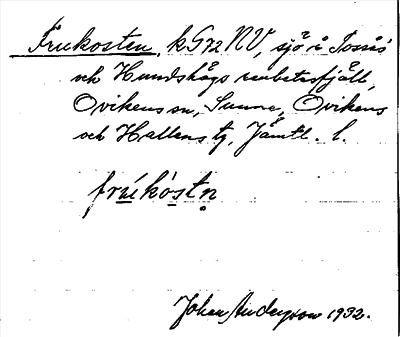 Frukosten, kG72 NV, sjö i Tossås
och Hundshögs renbetesfjäll,
Ovikens sn, Sunne, Ovikens
och Hallens tg, Jämtl. l.
frúkòstn̥
Johan Anderson 1932.